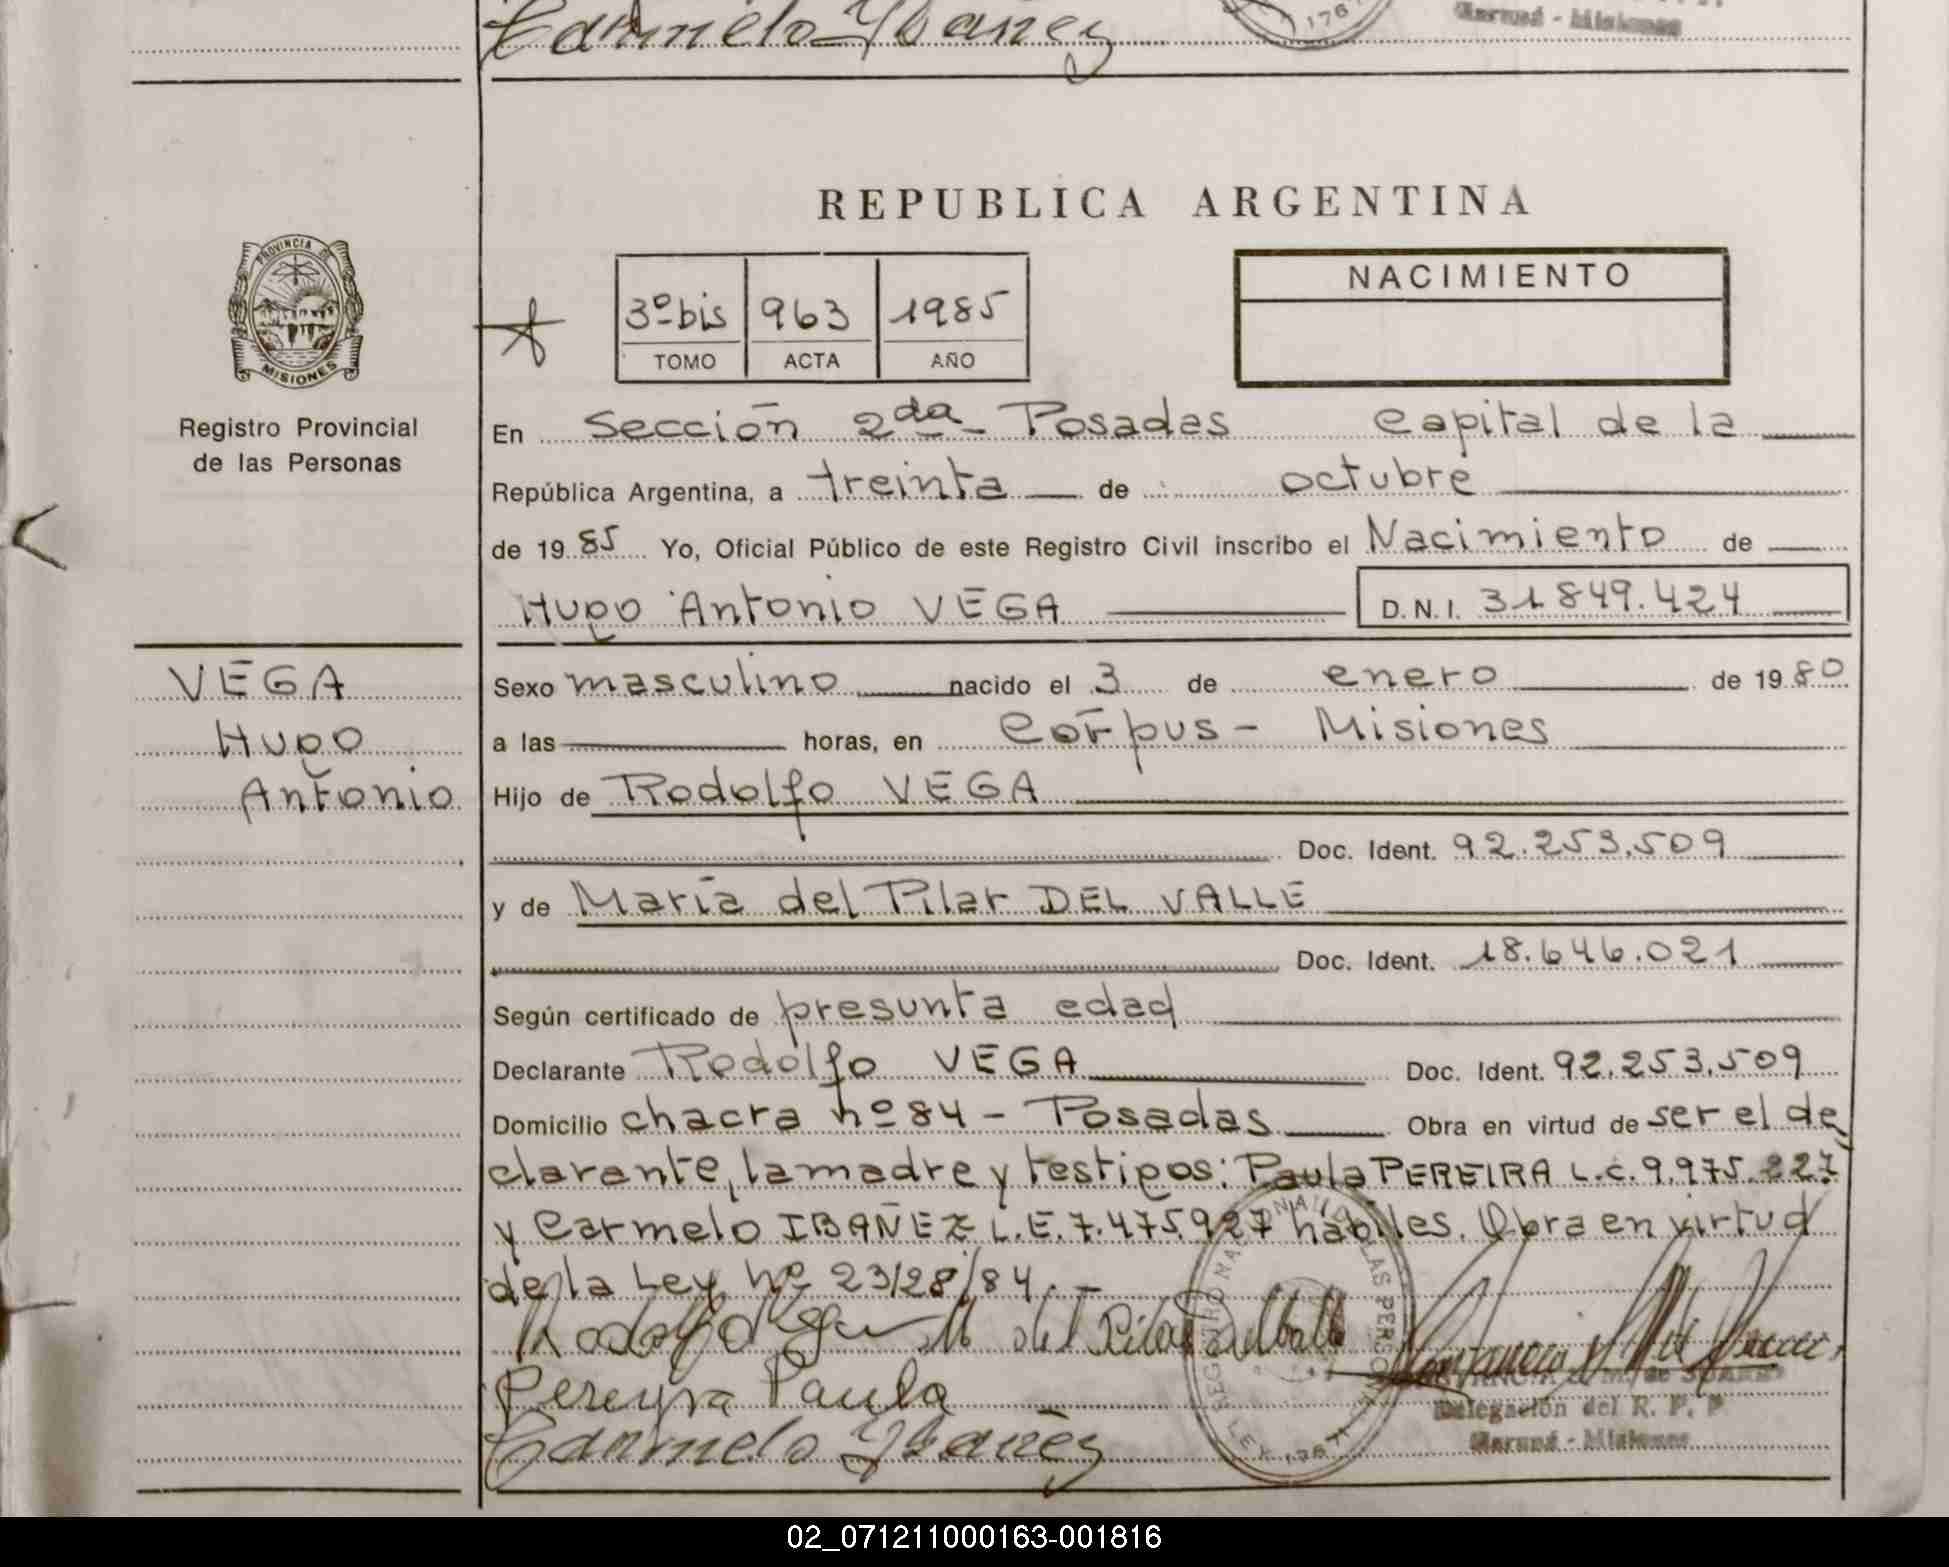 Carmelo Ybañez
1767
Garuná - Misiones
REPUBLICA ARGENTINA
PROVINCIA DE
MISIONES
Registro Provincial
de las Personas
3º bis 963 1985
TOMO ACTA AÑO
NACIMIENTO
En Sección 2da - Posadas Capital de la
República Argentina, a treinta de octubre
de 1985 Yo, Oficial Público de este Registro Civil inscribo el Nacimiento de
Hugo Antonio VEGA D.N.I. 31849.424
VEGA
Hugo
Antonio
Sexo masculino nacido el 3 de enero de 1980
a las horas, en Corpus - Misiones
Hijo de Rodolfo VEGA
Doc. Ident. 92.253.509
y de María del Pilar DEL VALLE
Doc. Ident. 18.646.021
Según certificado de presunta edad
Declarante Rodolfo VEGA Doc. Ident. 92.253.509
Domicilio chacra nº 84 - Posadas Obra en virtud de ser el de
clarante, la madre y testigos: Paula PEREIRA L.C. 9.975.227
y Carmelo IBAÑEZ L.E. 7.475.927 hábiles. Obra en virtud
de la Ley Nº 23128/84.-
Rodolfo Vega M del Pilar del Valle
Pereyra Paula
Carmelo Ybañez
Delegación del R. P. P.
Garuná - Misiones
02_071211000163-001816